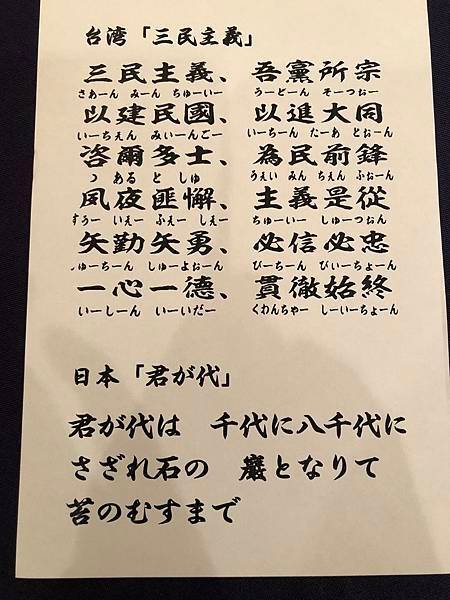 台湾「三民主義」
三民主義、 吾黨所宗
さあーん みーん ちゅーいー うーどーん そーつおー
以建民國、 以進大同
いーちぇん みぃーんごー いーちーん たーあ とぉーん
咨爾多士、 為民前鋒
あるとしゅ うぇい みん ちぇん ふぉーん
夙夜匪懈、 主義是從
すうー いえー ふぇー しぇー ちゅーいー しゅーつぉん
矢勤矢勇、 必信必忠
ゅーちーん しゅーよぉーん びーちーん びぃーちょーん
一心一德、 貫徹始終
いーしーん いーいだー くわんちゃー しーいーちょーん
日本「君が代」
君が代は 千代に八千代に
さざれ石の 巌となりて
苔のむすまで